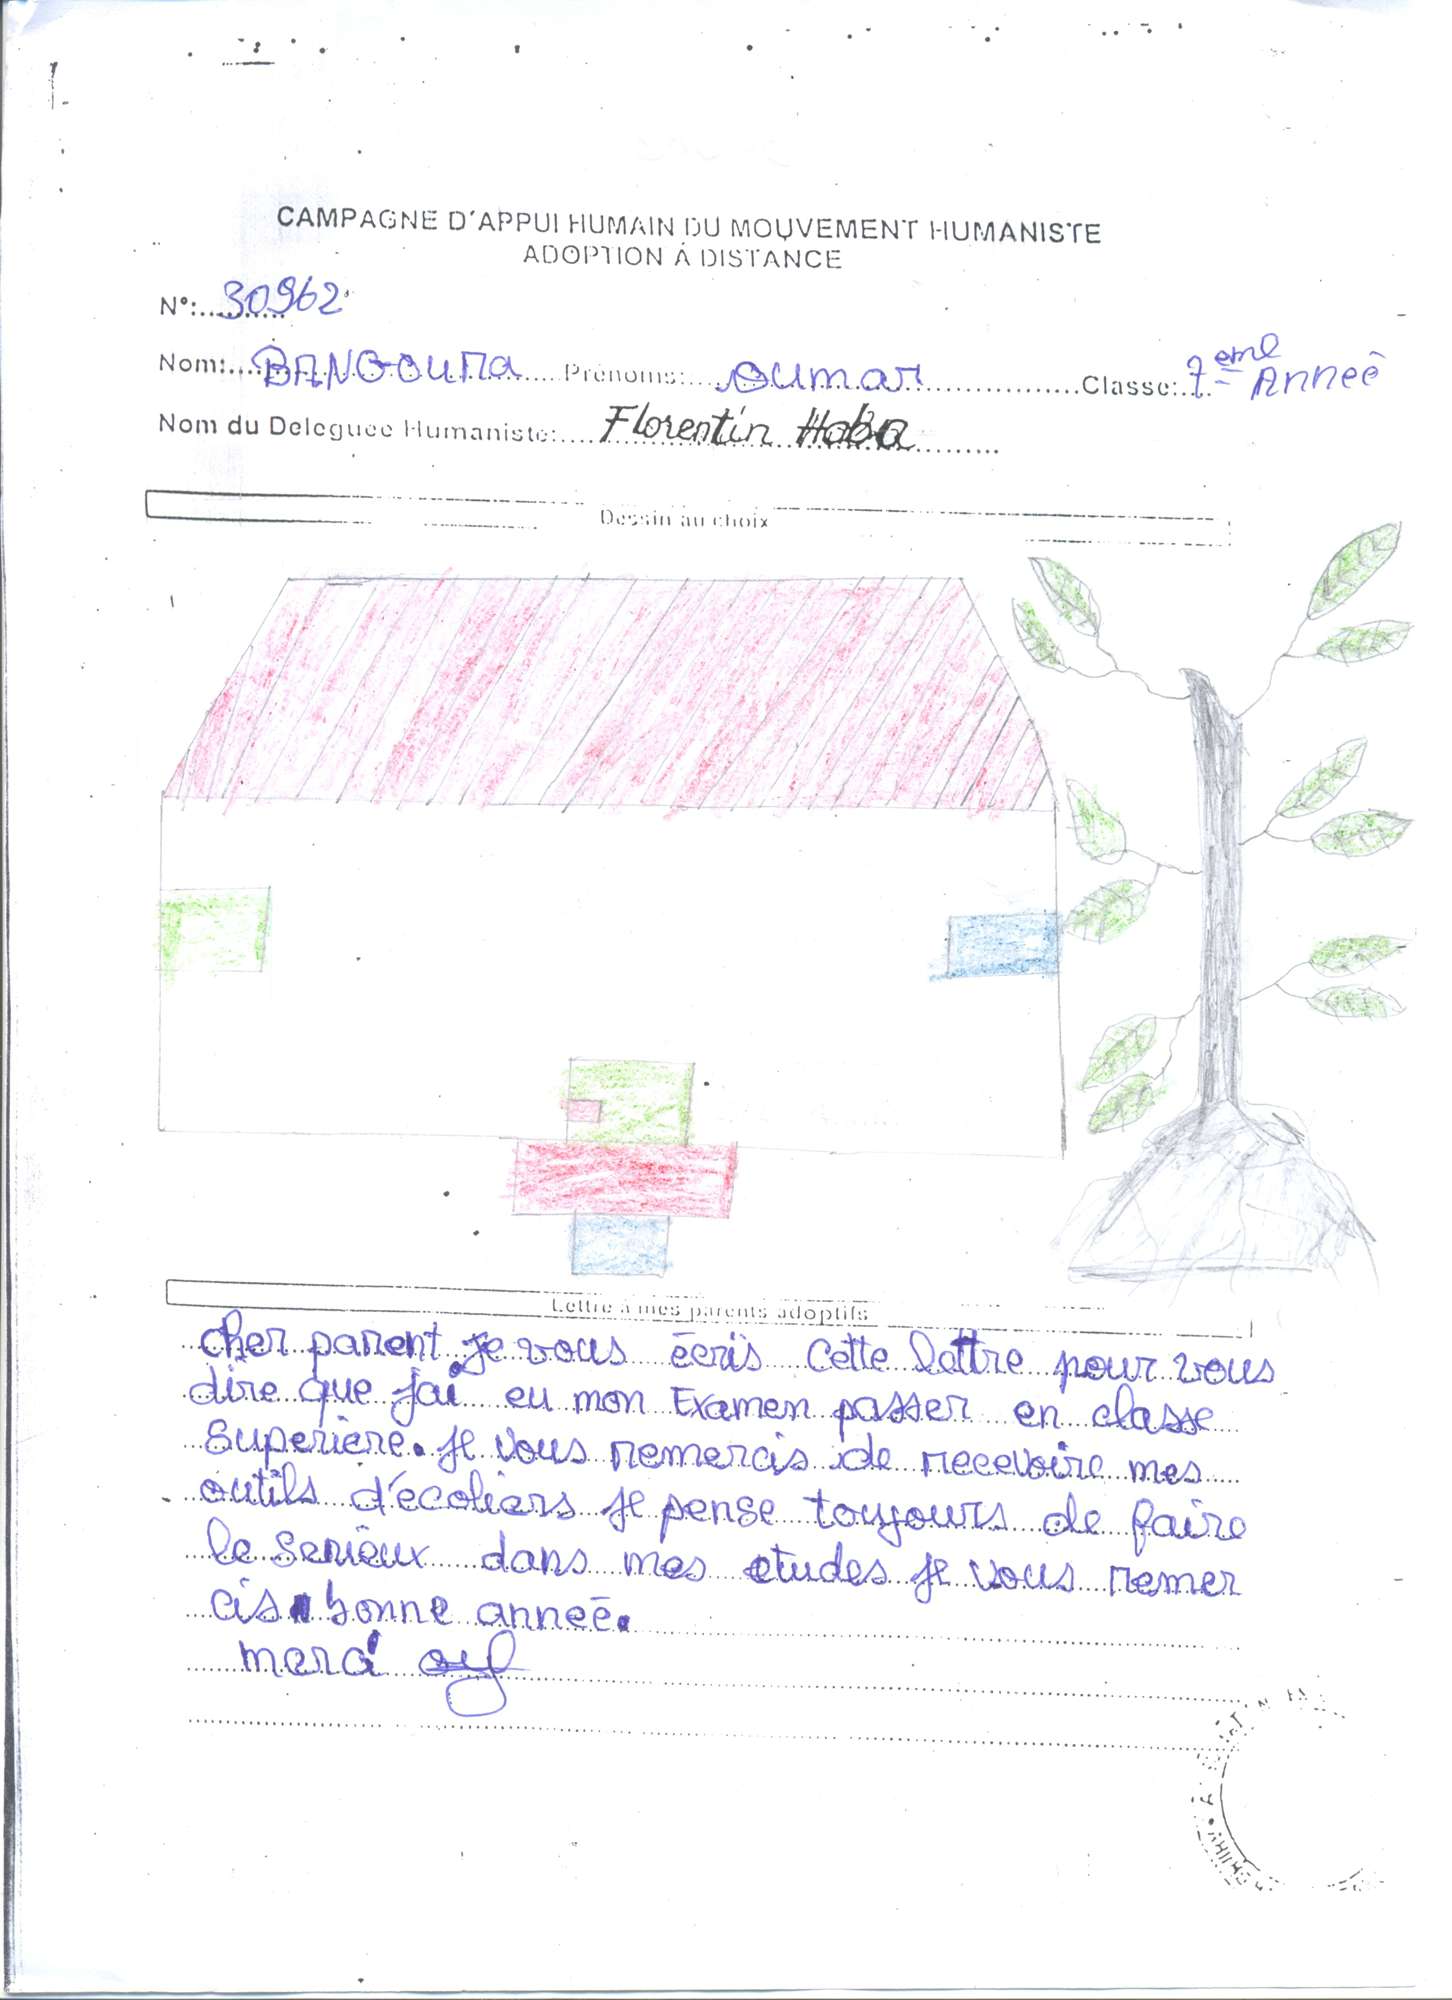 CAMPAGNE D'APPUI HUMAIN DU MOUVEMENT HUMANISTE
ADOPTION À DISTANCE
N°: 30962
Nom: BANGOURA Prénoms: oumar Classe: 7ème Anneé
Nom du Deleguee Humaniste: Florentin Haba
Dessin au choix
Lettre à mes parents adoptifs
cher parent je vous écris cette lettre pour vous
dire que j'ai eu mon Examen passer en classe
Superière. je vous remercis de recevoire mes
outils d'ecoliers je pense toujours de faire
le serieux dans mes etudes je vous remer
cis bonne anneé.
merci